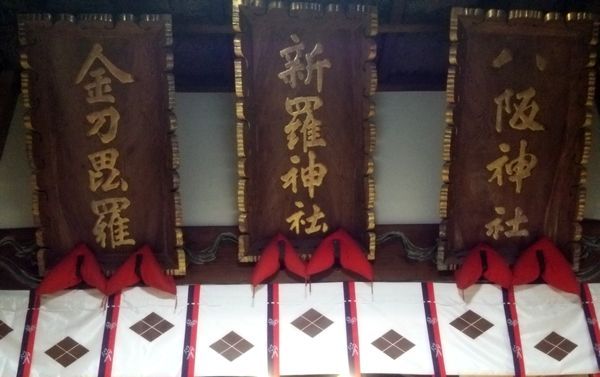 八阪神社
新羅神社
金刀毘羅